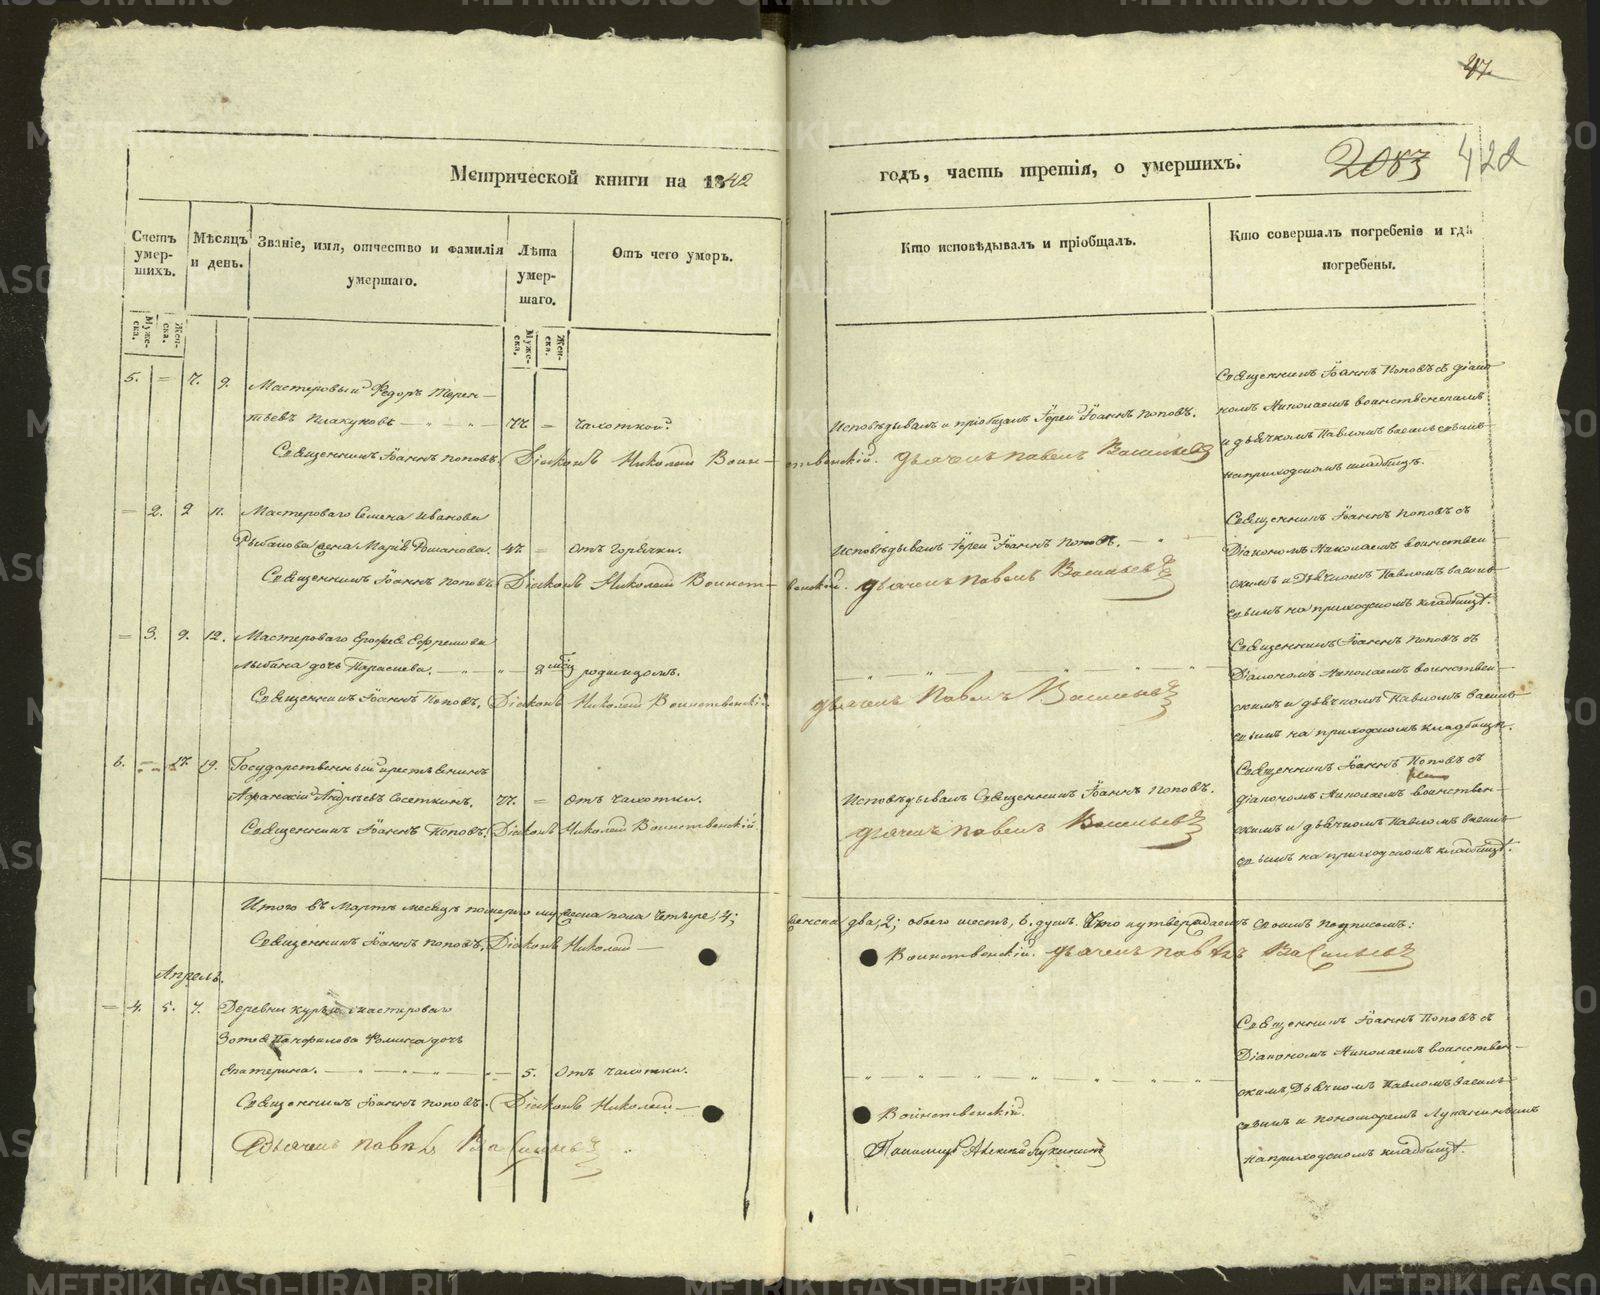 47.
Метрической книги на 1842
годъ, часть третія, о умершихъ.
2083 422
Счетъ умер-шихъ.
Муже-ска.
Жен-ска.
Мѣсяцъ и день.
Званіе, имя, отчество и фамилія умершаго.
Лѣта умер-шаго.
Муже-ска.
Жен-ска.
Отъ чего умеръ.
Кто исповѣдывалъ и пріобщалъ.
Кто совершалъ погребеніе и гдѣ погребены.
5. = 7. 9. Мастеровый Ѳедоръ Терен-
тьевъ Плакуновъ 77. = Чахоткой.
Исповѣдывалъ и пріобщалъ Іерей Іоаннъ Поповъ.
Священникъ Іоаннъ Поповъ съ діако-
номъ Николаемъ воинственскимъ
и дьячкомъ Павломъ васильевымъ
на приходскомъ кладбищѣ.
Священникъ Іоаннъ Поповъ. Діаконъ Николай Воин-
ственскій. Дьячекъ Павелъ Васильевъ
= 2. 9 11. Мастероваго Семена Иванова
жена Марія Романова. 47. = Отъ горячки.
Исповѣдывалъ Іерей Іоаннъ Поповъ.
Священникъ Іоаннъ Поповъ съ
Діакономъ Николаемъ воинствен-
скимъ и Дьячкомъ Павломъ василь-
евымъ на приходскомъ кладбищѣ.
Священникъ Іоаннъ Поповъ. Діаконъ Николай Воинст-
венскій. Дьячекъ Павелъ Васильевъ
= 3. 9. 12. Мастероваго Ерофея Ефремова
дочь Параскева. 2 мѣс. родимцомъ.
Священникъ Іоаннъ Поповъ съ
Діакономъ Николаемъ воинствен-
скимъ и дьячкомъ Павломъ василь-
евымъ на приходскомъ кладбищѣ.
Священникъ Іоаннъ Поповъ. Діаконъ Николай Воинственскій
Дьячекъ Павелъ Васильевъ
6. = 17. 19. Государственный крестьянинъ
Афанасій Андреевъ Сосеткинъ. 77. = Отъ чахотки.
Исповѣдывалъ Священникъ Іоаннъ Поповъ.
Священникъ Іоаннъ Поповъ съ
діакономъ Николаемъ воинствен-
скимъ и дьячкомъ Павломъ василь-
евымъ на приходскомъ кладбищѣ.
Священникъ Іоаннъ Поповъ. Діаконъ Николай Воинственскій.
Дьячекъ Павелъ Васильевъ
Итого въ Мартѣ месяцѣ померло мужеска пола четыре, 4;
женска два, 2; обоего шесть, 6. душъ. Что и утверждаемъ своимъ подписомъ:
Священникъ Іоаннъ Поповъ. Діаконъ Николай
Воинственскій. Дьячекъ Павелъ Васильевъ
Апрель.
= 4. 5. 7. Деревни мастероваго
Зотея Панфилова Фомина дочь
Екатерина. 5. Отъ чахотки.
Священникъ Іоаннъ Поповъ съ
Діакономъ Николаемъ воинствен-
скимъ, Дьячкомъ Павломъ василь-
евымъ и пономаремъ
на приходскомъ кладбищѣ.
Священникъ Іоаннъ Поповъ. Діаконъ Николай
Воинственскій.
Дьячекъ Павелъ Васильевъ
Пономарь Алексей
METRIKI.GASO-URAL.RU